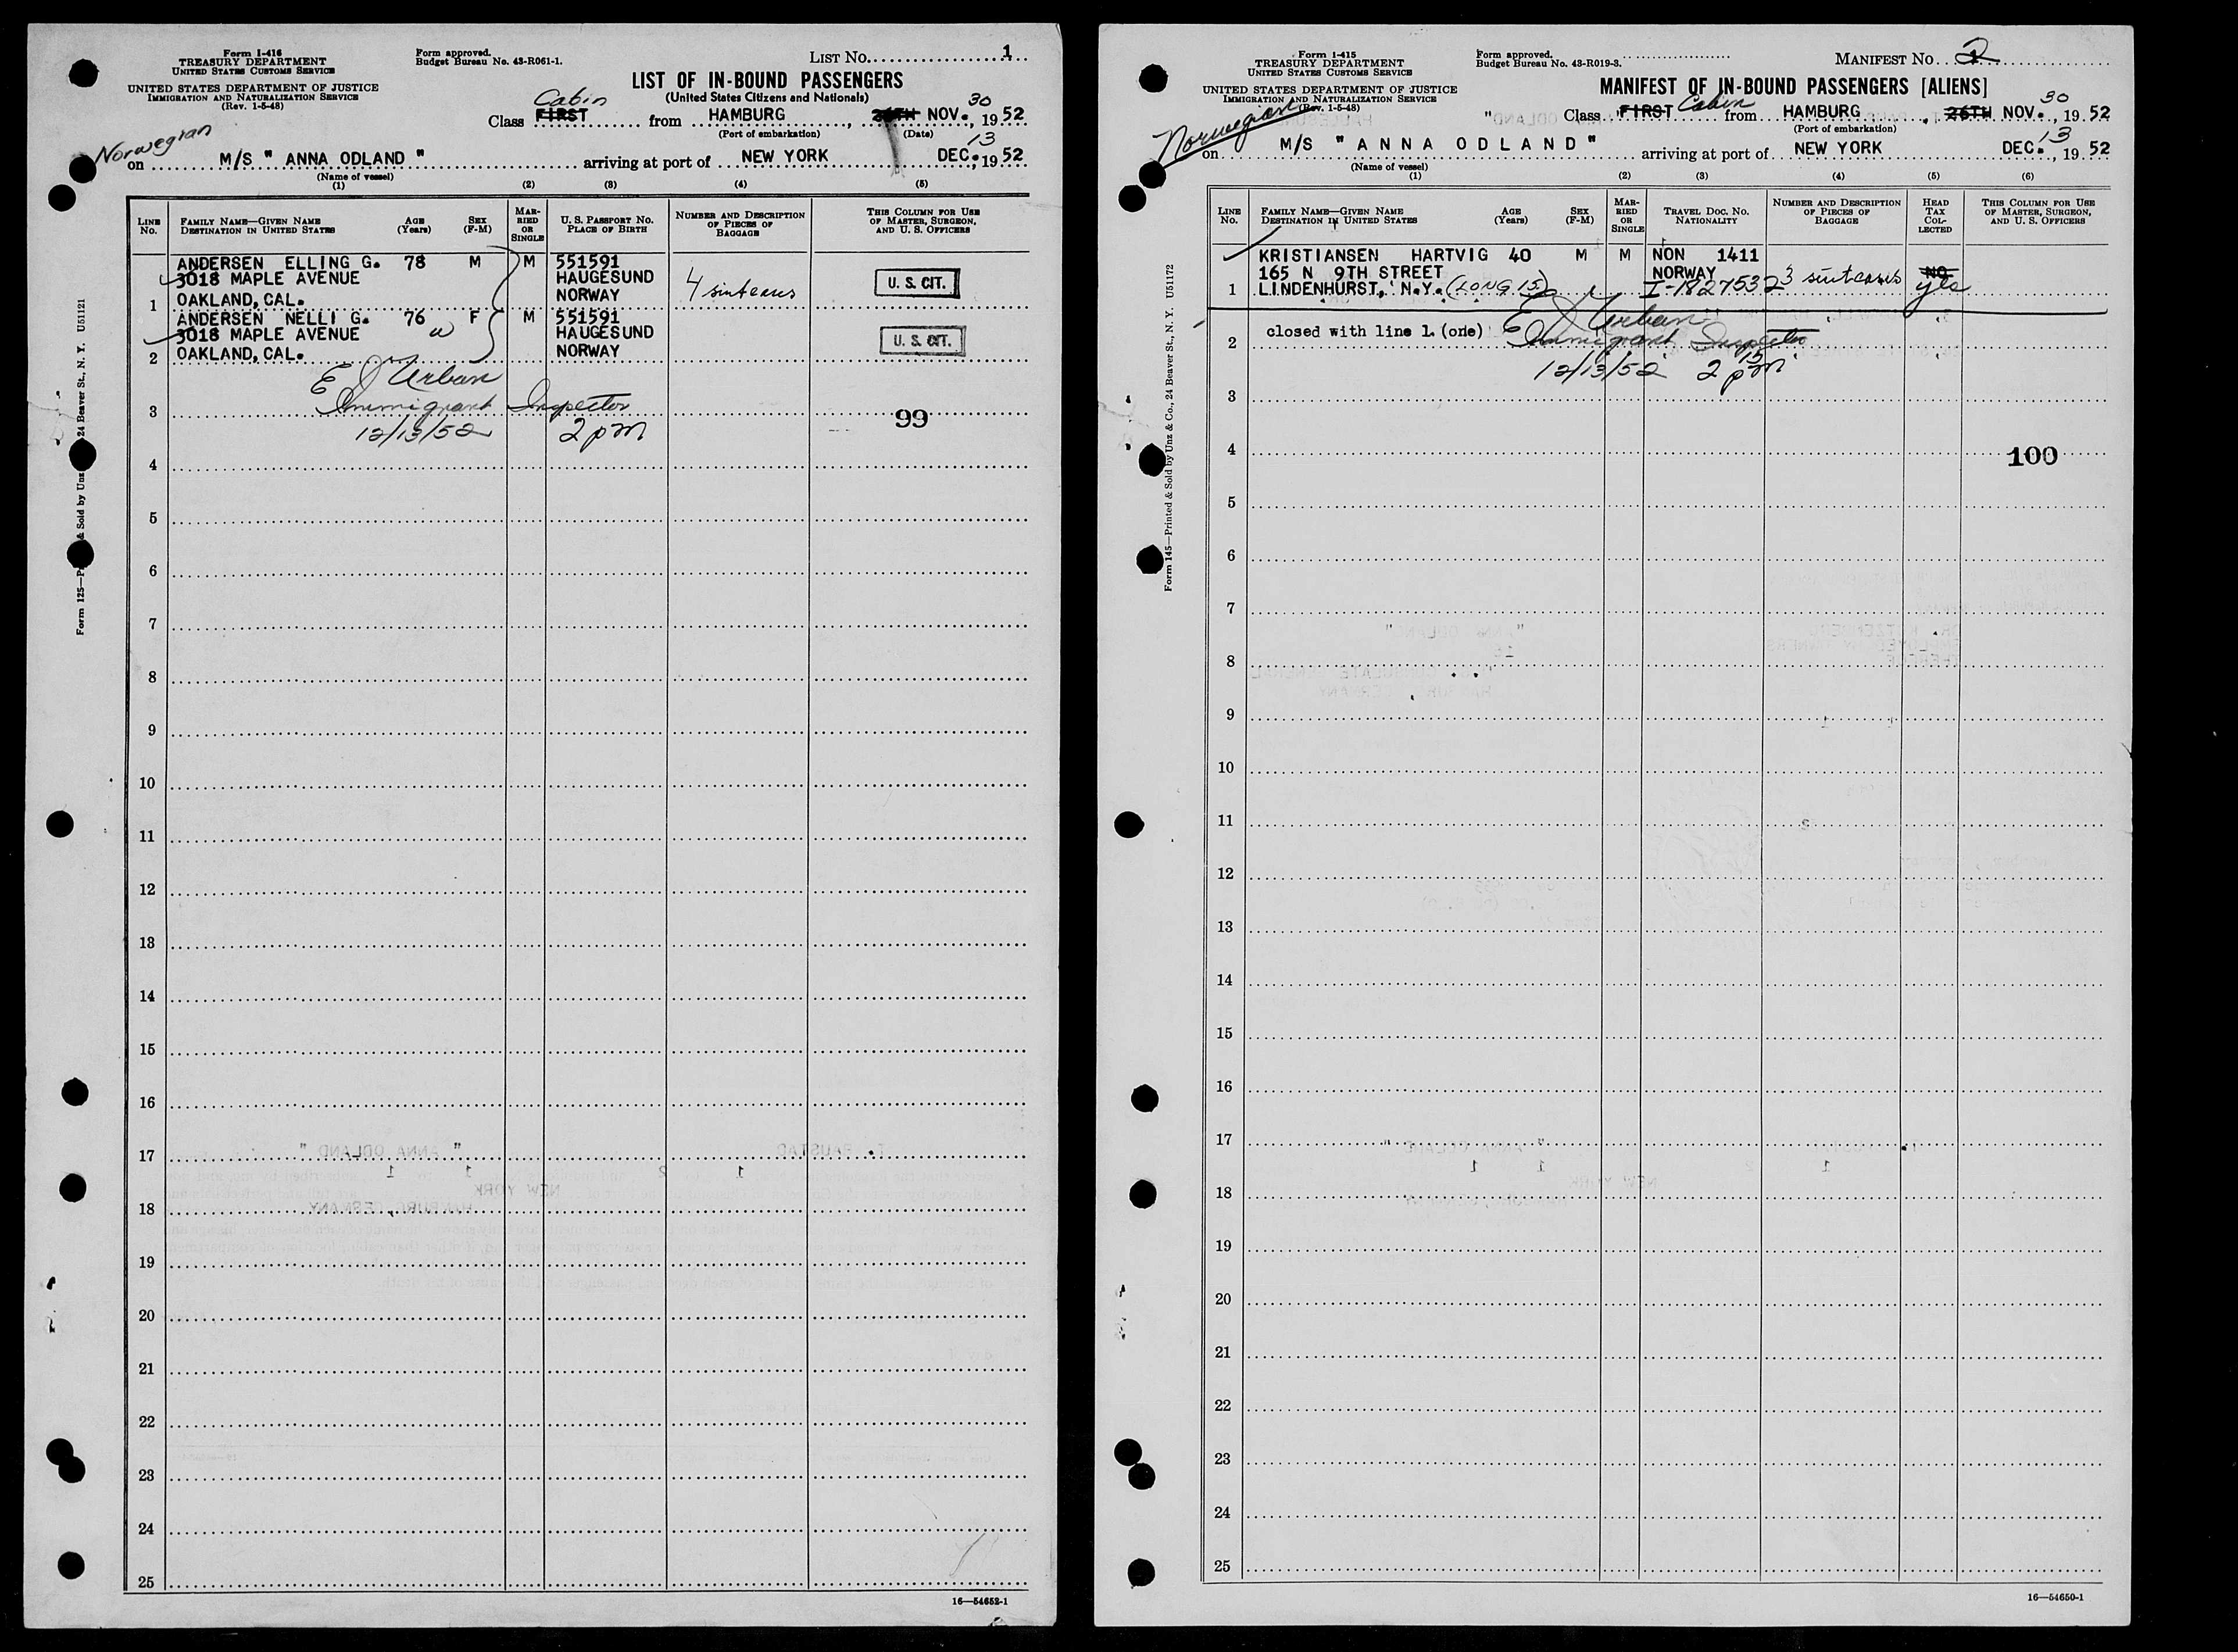 Form I-416
TREASURY DEPARTMENT
UNITED STATES CUSTOMS SERVICE
UNITED STATES DEPARTMENT OF JUSTICE
IMMIGRATION AND NATURALIZATION SERVICE
(Rev. 1-5-48)
Form approved.
Budget Bureau No. 43-R061-1.
LIST NO. 1
LIST OF IN-BOUND PASSENGERS
(United States Citizens and Nationals)
Cabin 30
Class FIRST from HAMBURG, 26TH NOV. 1952
(Port of embarkation) (Date)
Norwegian 13
on M/S " ANNA ODLAND " arriving at port of NEW YORK DEC. 1952
(Name of vessel)
(1) (2) (3) (4) (5)
LINE NO.
FAMILY NAME—GIVEN NAME
DESTINATION IN UNITED STATES
AGE (Years)
SEX (F-M)
MARRIED OR SINGLE
U. S. PASSPORT NO.
PLACE OF BIRTH
NUMBER AND DESCRIPTION OF PIECES OF BAGGAGE
THIS COLUMN FOR USE OF MASTER, SURGEON, AND U. S. OFFICERS
ANDERSEN ELLING G. 78 M M 551591
3018 MAPLE AVENUE HAUGESUND U. S. CIT.
1 OAKLAND, CAL. NORWAY 4 suitcases
ANDERSEN NELLI G. 76 F M 551591
3018 MAPLE AVENUE HAUGESUND U. S. CIT.
2 OAKLAND, CAL. NORWAY
E J Urban
3 Immigrant Inspector 99
12/13/52 2 pm
4
5
6
7
8
9
10
11
12
13
14
15
16
17
18
19
20
21
22
23
24
25
16—54652-1
Form I-415
TREASURY DEPARTMENT
UNITED STATES CUSTOMS SERVICE
UNITED STATES DEPARTMENT OF JUSTICE
IMMIGRATION AND NATURALIZATION SERVICE
(Rev. 1-5-48)
Form approved.
Budget Bureau No. 43-R019-3.
MANIFEST NO. 2
MANIFEST OF IN-BOUND PASSENGERS [ALIENS]
Cabin 30
Class FIRST from HAMBURG, 26TH NOV., 1952
(Port of embarkation)
Norwegian 13
on M/S "ANNA ODLAND" arriving at port of NEW YORK DEC., 1952
(Name of vessel)
(1) (2) (3) (4) (5) (6)
LINE NO.
FAMILY NAME—GIVEN NAME
DESTINATION IN UNITED STATES
AGE (Years)
SEX (F-M)
MARRIED OR SINGLE
TRAVEL DOC. NO.
NATIONALITY
NUMBER AND DESCRIPTION OF PIECES OF BAGGAGE
HEAD TAX COLLECTED
THIS COLUMN FOR USE OF MASTER, SURGEON, AND U. S. OFFICERS
KRISTIANSEN HARTVIG 40 M M NON 1411
165 N 9TH STREET NORWAY 3 suitcases NO
1 LINDENHURST, N.Y. (LONG IS) I-1827532 yes
2 closed with line 1. (one) E J Urban
Immigrant Inspector
12/13/52 2 15 pm
3
4 100
5
6
7
8
9
10
11
12
13
14
15
16
17
18
19
20
21
22
23
24
25
16—54650-1
Form 145—Printed & Sold by Unz & Co., 24 Beaver St., N. Y. U51172